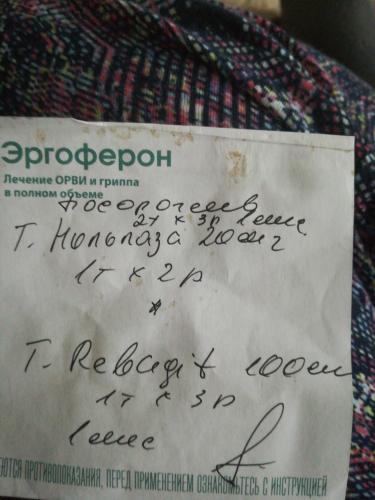 Эргоферон
Лечение ОРВИ и гриппа
в полном объеме
2т х 3р 1 мес
Т. Нольпаза 20 мг
1т х 2р
Т. Rebagit 100 мг
1т х 3р
1 мес
ЮТСЯ ПРОТИВОПОКАЗАНИЯ, ПЕРЕД ПРИМЕНЕНИЕМ ОЗНАКОМЬТЕСЬ С ИНСТРУКЦИЕЙ